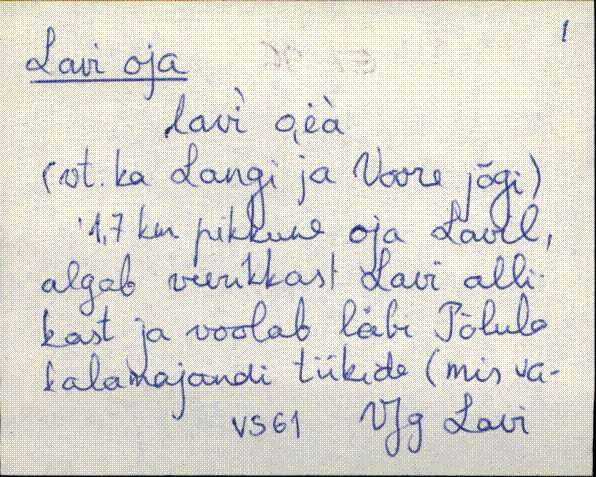 1
Lavi oja
lavì o̭ èà
(vt. ka Langi ja Voore jõgi)
1,7 km pikkune oja Lavil,
algab veerikkast Lavi alli-
kast ja voolab läbi Põlula
kalamajandi tiikide (mis va-
VS61 VJg Lavi